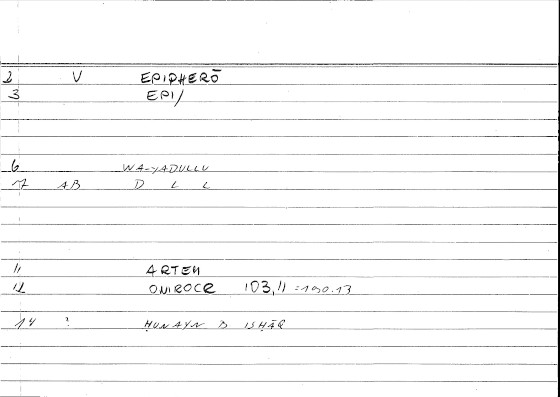 2 V EPIPHERŌ
3 EPI/
6 WA-YADULLU
7 AB D L L
11 ARTEM
12 ONIROCR 103,11 =190.13
14 ? ḤUNAYN B ISḤĀQ